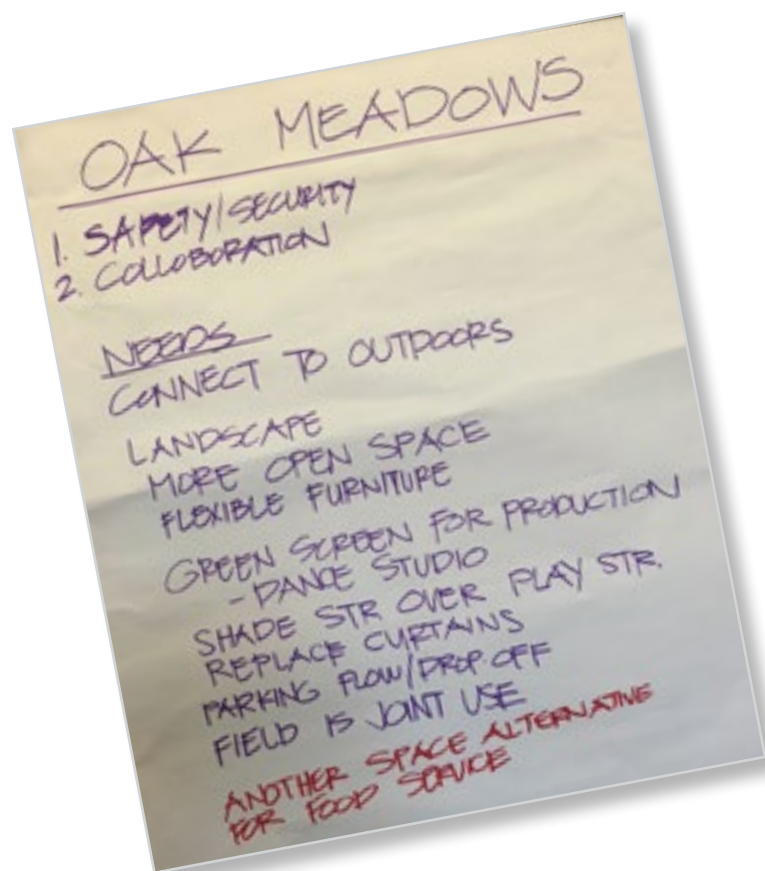 OAK MEADOWS
1. SAFETY/SECURITY
2. COLLOBORATION
NEEDS
CONNECT TO OUTDOORS
LANDSCAPE
MORE OPEN SPACE
FLEXIBLE FURNITURE
GREEN SCREEN FOR PRODUCTION
- DANCE STUDIO
SHADE STR OVER PLAY STR.
REPLACE CURTAINS
PARKING FLOW/DROP OFF
FIELD IS JOINT USE
ANOTHER SPACE ALTERNATIVE
FOR FOOD SERVICE